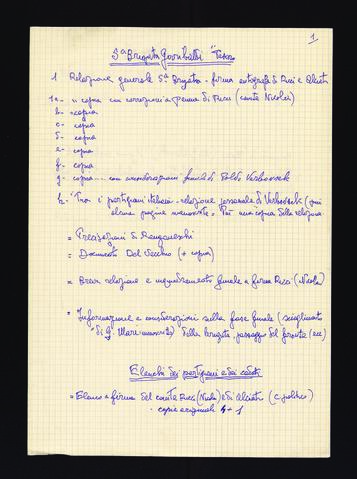 1
5ª Brigata Garibaldi "Pesaro
1 Relazione generale 5ª Brigata - firma autografa di Ricci e Alciati
1a- " copia con correzioni a penna di Ricci (conte Nicolai)
b- = copia
c - copia
d - copia
e - copia
f - copia
g - copia --- con considerazioni finali di Poldo Verbovsek
h- "Tra i partigiani italiani - relazione personale di Verbovsek (
alcune pagine manoscritte = Poi una copia della relazione
= Precisazioni di Mengarelli
= Documento Del Vecchio (+ copia)
= Breve relazione e inquadramento finale a firma Ricci (Nicola)
= Informazione e considerazioni sulla fase finale (scioglimento
della brigata, passaggio del fronte (ecc)
Elenchi dei partigiani e dei caduti
= Elenco a firma del conte Ricci (Nicola) e di Alciati (c. politico)
- copie originali 4 + 1